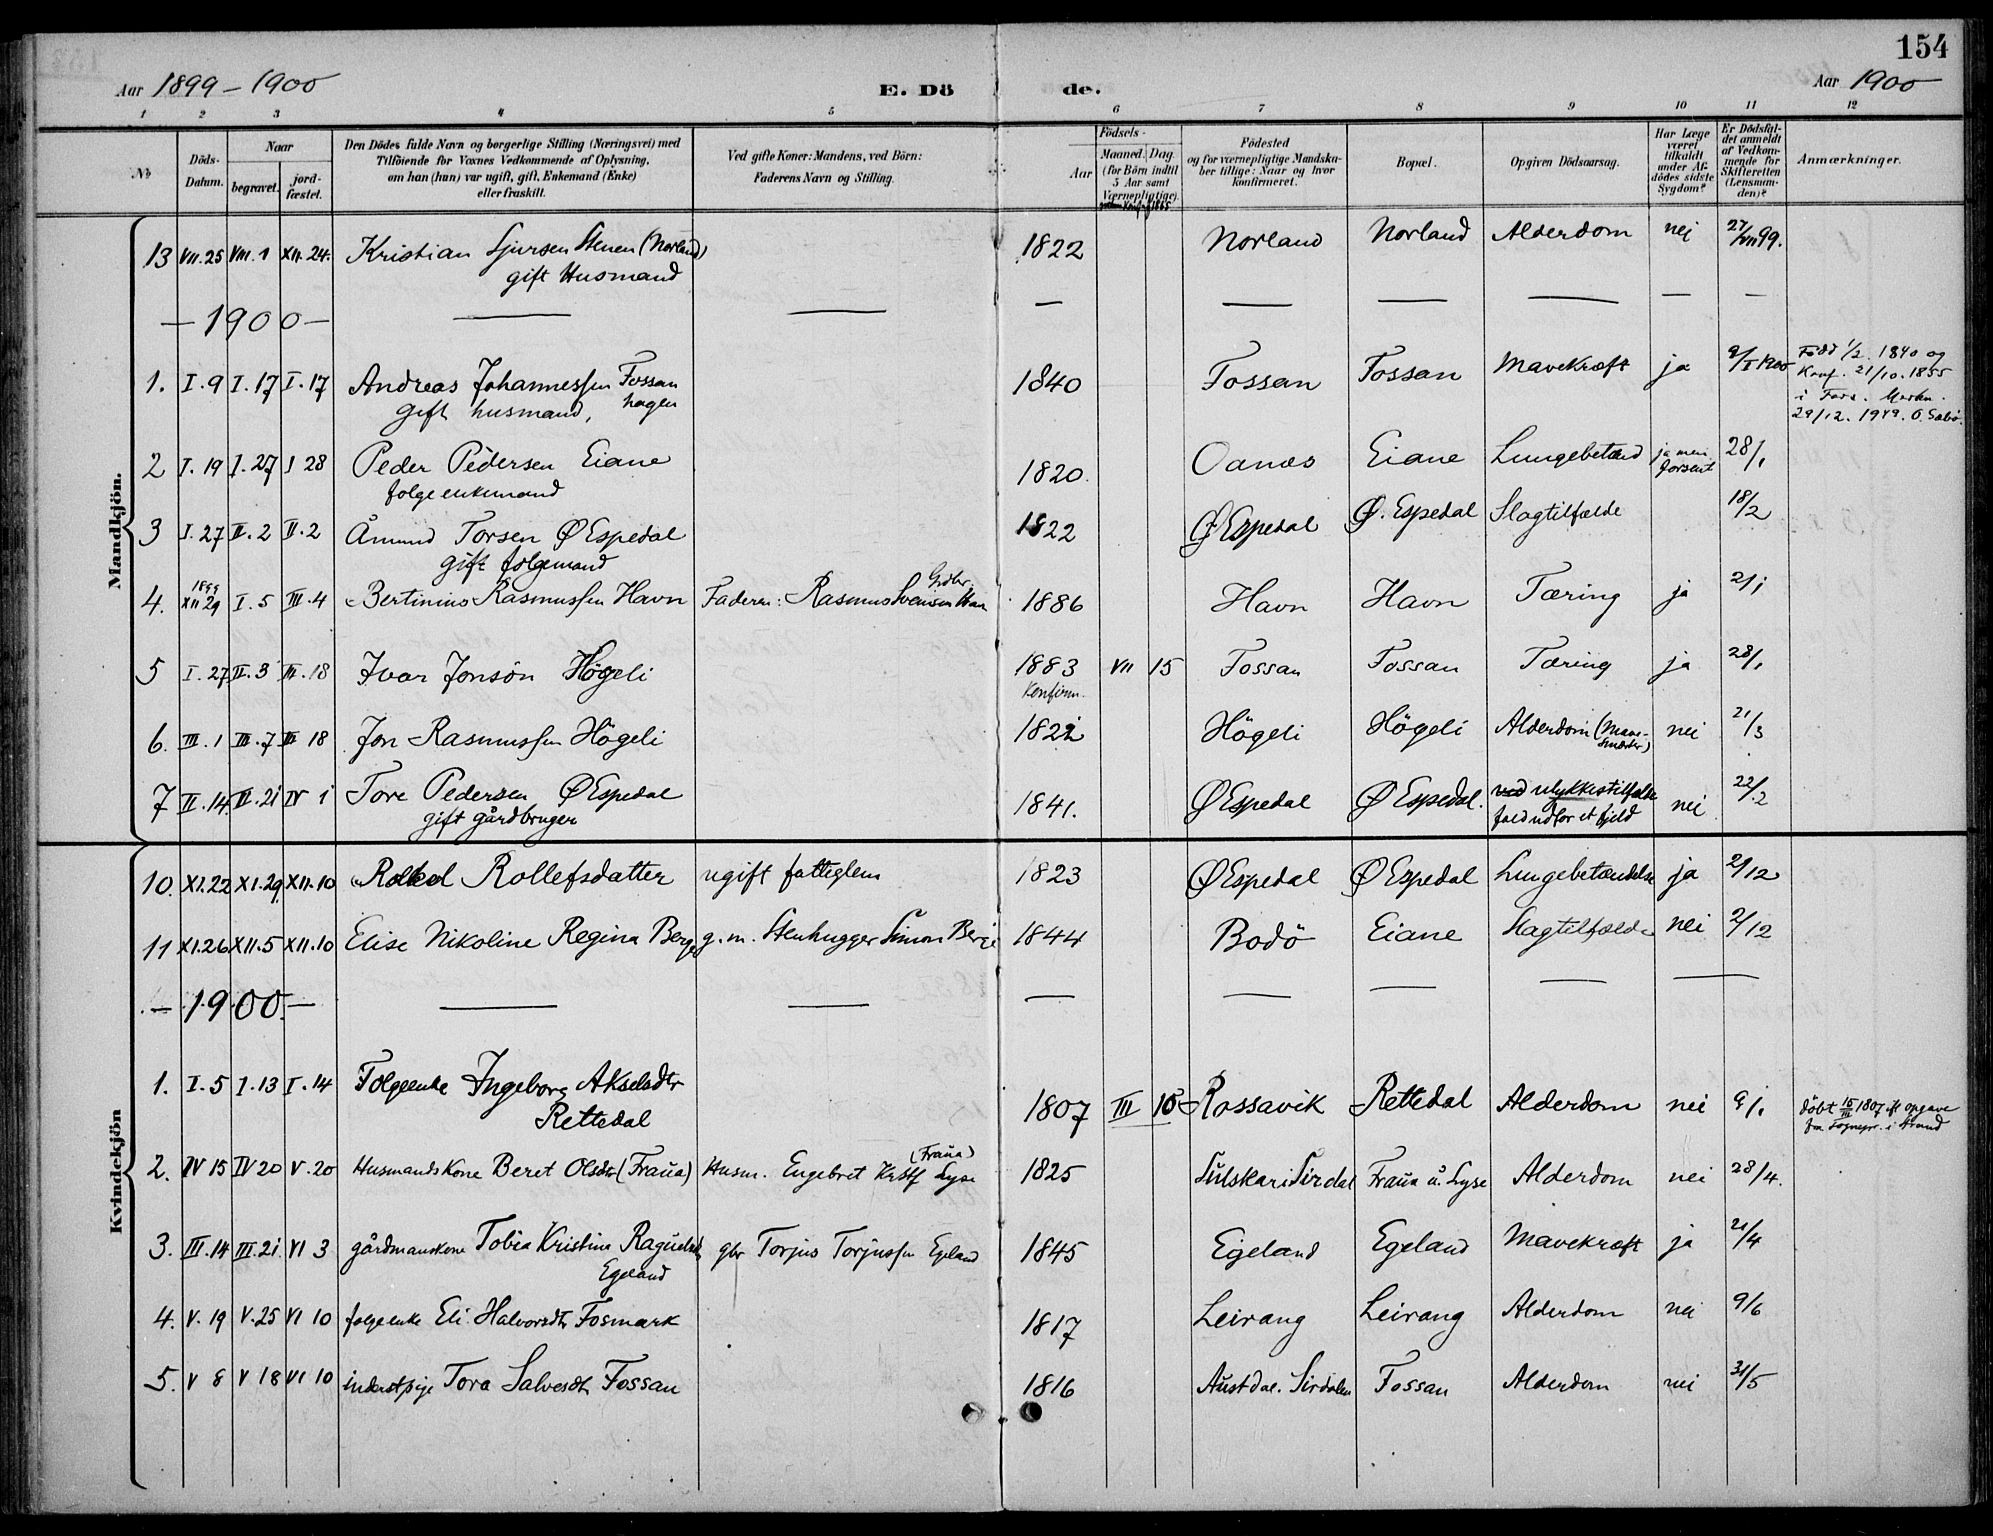 154
Aar 1899-1900 E. Dö de. Aar 1900
1 2 3 4 5 6 7 8 9 10 11 12
No Döds-Datum. Naar begravet. jord-fæstet.
Den Dödes fulde Navn og borgerlige Stilling (Næringsvei) med
Tilföiende for Voxnes Vedkommende af Oplysning,
om han (hun) var ugift, gift, Enkemand (Enke)
eller fraskilt.
Ved gifte Koner: Mandens, ved Börn:
Faderens Navn og Stilling.
Födsels-
Aar Maaned. Dag.
(for Börn indtil
5 Aar samt
Værnepligtige)
Födested
og for værnepligtige Mandska-
ber tillige: Naar og hvor
konfirmeret.
Bopæl.
Opgiven Dödsaarsag.
Har Læge
været
tilkaldt
under Af-
dödes sidste
Sygdom?
Er Dödsfal-
det anmeldt
af Vedkom-
mende for
Skifteretten
(Lensman-
den)?
Anmærkninger.
Mandkjön.
13 VII.25 VIII.1 XII.24. Kristian Sjursen Stenen (Norland) 1822 Norland Norland Alderdom nej 27/VII 99.
gift Husmand
— 1900 —
1. I.9 I.17 I.17 Andreas Johannessen Fossan 1840 Fossan Fossan Mavekræft ja 9/I 1900 Född 1/2. 1840 og
gift husmand, hagen Konf. 21/10.1855
i Fors. Merkn.
29/12. 1949. O. Sabö.
2 I.19 I.27 I 28 Peder Pedersen Eiane 1820. Oanes Eiane Lungebetænd ja men forsent 28/1
folge enkemand
3 I.27 II.2 II.2 Åmund Torsen Ø Espedal 1822 Ø Espedal Ø. Espedal Slagtilfælde 18/2
gift folgemand
4. 1899 XII 29 I.5 III.4 Bertinius Rasmussen Havn Faderen: Rasmus Svensen Havn Grdbr. 1886 Havn Havn Tæring ja 2/1
5 I.27 II.3 III.18 Ivar Jonsön Högeli 1883 VII 15 Fossan Fossan Tæring ja 28/1
Konfirm.
6. III.1 III.7 III 18 Jon Rasmussen Högeli 1822 Högeli Högeli Alderdom (Mave-smerter) nei 21/3
7 II.14 II.21 IV 1 Tore Pedersen Ø Espedal 1841. Ø Espedal Ø Espedal. ved ulykkestilfælde nei 22/2
gift gårdbruger fald udfor et fjeld
Kvindekjön
10. XI.22 XI.29. XII.10 Rollefsdatter ugift fattiglem 1823 Ø Espedal Ø Espedal Lungebetændelse ja 2/12
11 XI.26 XII.5 XII.10 Elise Nikoline Regina Berge g.m. Stenhugger Simon Berge 1844 Bodö Eiane Slagtilfælde nei 2/12
— 1900. —
1. I.5 I.13 I.14 Folgeenke Ingeborg Akselsdtr 1807 III 15 Rossavik Rettedal Alderdom nei 9/1 döbt 15/III 1807 ifl opgave
Rettedal fra Sognepr. i Strand
2. IV 15 IV 20 V.20 Husmandskone Beret Olsdtr (Fraua) Husm. Engebret Krstf Lyse (Fraua) 1825 Sulskar i Sirdal Fraua ü. Lyse Alderdom nei 28/4.
3. III.14 III.21 VI 3 gårdmanskone Tobia Kristine Raguelsdtr gbr Torjus Torjussen Egeland 1845 Egeland Egeland Mavekræft ja 21/4
Egeland
4. V.19 V.25 VI 10 folgeenke Eli Halvorsdtr Fosmark 1817 Leirang Leirang Alderdom nei 9/6
5. V 8 V 18 VI 10 inderstpige Tora Salvesdtr Fossan 1816 Austdal. Sirdalen Fossan Alderdom nei 31/5